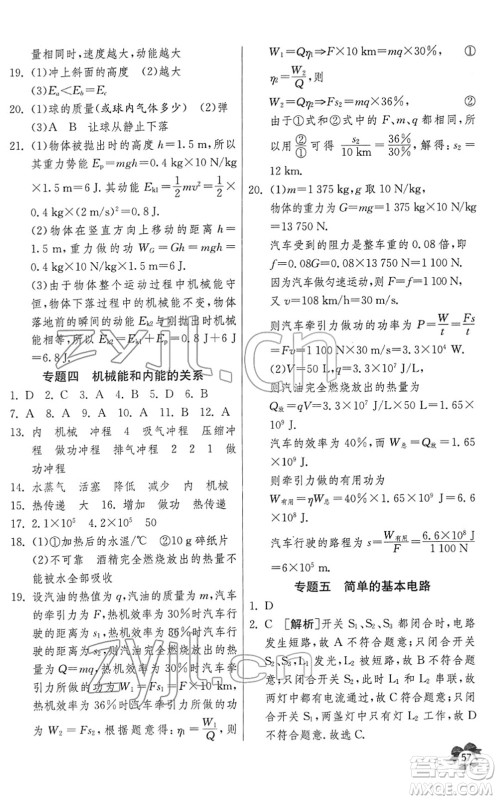 量相同时,速度越大,动能越大
19. (1)冲上斜面的高度 (2)越大
(3)Ea<Eb=Ec
20. (1)球的质量(或球内气体多少) (2)弹
(3)A B 让球从静止下落
21. (1)物体被抛出时的高度 h=1.5 m,所以
其重力势能 Ep=mgh=0.4 kg×10 N/kg×
1.5 m=6 J. 其动能 Ek1=1/2mv²=1/2×
0.4 kg×(2 m/s)²=0.8 J
(2)物体在竖直方向上移动的距离 h=
1.5 m,重力做的功 WG=Gh=mgh=
0.4 kg×10 N/kg×1.5 m=6 J.
(3)由于物体整个运动过程中机械能守
恒,物体下落过程中的机械能不变,物体
落地前的瞬间的动能 Ek2 与刚抛出时机械
能相等,所以 Ek2=Ek1+Ep=0.8 J+6 J
=6.8 J
专题四 机械能和内能的关系
1. D 2. C 3. A 4. B 5. D 6. A
7. A 8. A 9. A 10. B 11. B 12. A
13. 内 机械 冲程 4 吸气冲程 压缩冲
程 做功冲程 排气冲程
14. 水蒸气 活塞 降低 减少 内 机械
15. 热传递 大 16. 增加 做功 热传递
17. 2.1×10⁵ 4.2×10⁵ 50
18. (1)加热后的水温/℃ ②10 g碎纸片
(2)不可靠 酒精完全燃烧放出的热量水
未能全部吸收
19. 设汽油的热值为 q,汽油的质量为 m,汽车
的牵引力为 F,热机效率为 30%时汽车行
驶的距离为 s1,热机效率为 36%时汽车行
驶的距离为 s2,则汽油完全燃烧放出的热
量为 Q=mq,当热机效率为 30%时汽车
牵引力做的功为 W1=Fs1=F×10 km,
当热机效率为 36%时汽车牵引力做的功
为 W2=Fs2,根据热机效率 η=W/Q,则
W1=Qη1=F×10 km=mq×30% ①
η2=W2/Q,则
W2=Qη2=Fs2=mq×36%, ②
由于①式和②式中的 F、m、q 都相同,所
以②/①可得 s2/10 km=36%/30%,解得:s2=
12 km.
20. (1)m=1 375 kg,g 取10 N/kg
物体的重力为 G=mg=1 375 kg×10 N/kg
=13 750 N.
汽车受到的阻力是整车重的 0.08 倍,即
f=0.08G=0.08×13 750 N=1 100 N.
因为汽车做匀速运动,所以 F=f=1 100 N.
又 v=108 km/h=30 m/s.
则汽车牵引力做功的功率为 P=W/t=Fs/t
=Fv=1 100 N×30 m/s=3.3×10⁴ W.
(2)V=50 L,q=3×10⁷ J/L
则汽油完全燃烧放出的热量为
Q放=qV=3×10⁷ J/L×50 L=1.5×10⁹ J.
汽车的效率为 η=44%
所以汽车做的功为 W总=Q放=1.5×
10⁹ J.
则牵引力做的有用功为
W有用=ηW总=1.5×10⁹ J×44%=6.6×
10⁸ J.
汽车行驶的路程为 s=W有用/F=6.6×10⁸ J/1 100 N
=6×10⁵ m.
专题五 简单的基本电路
1. D
2. C [解析]开关 S1、S2、S3 都闭合,电路
发生短路,故 A 不符合题意;只闭合开关
S2、S3,灯 L1 与灯 L2 被短路,电源发生
短路,故 B 不符合题意;只闭合开关
S2,电流通过 L1 和 L2 组成串联,故
两灯中都有电流通过,故 C 符合题意;只
闭合开关 S1,两盏灯中只有 L2 工作,故
D 不符合题意;故选 C.
57
zyjl.cn
答案圈
MXQE.COM